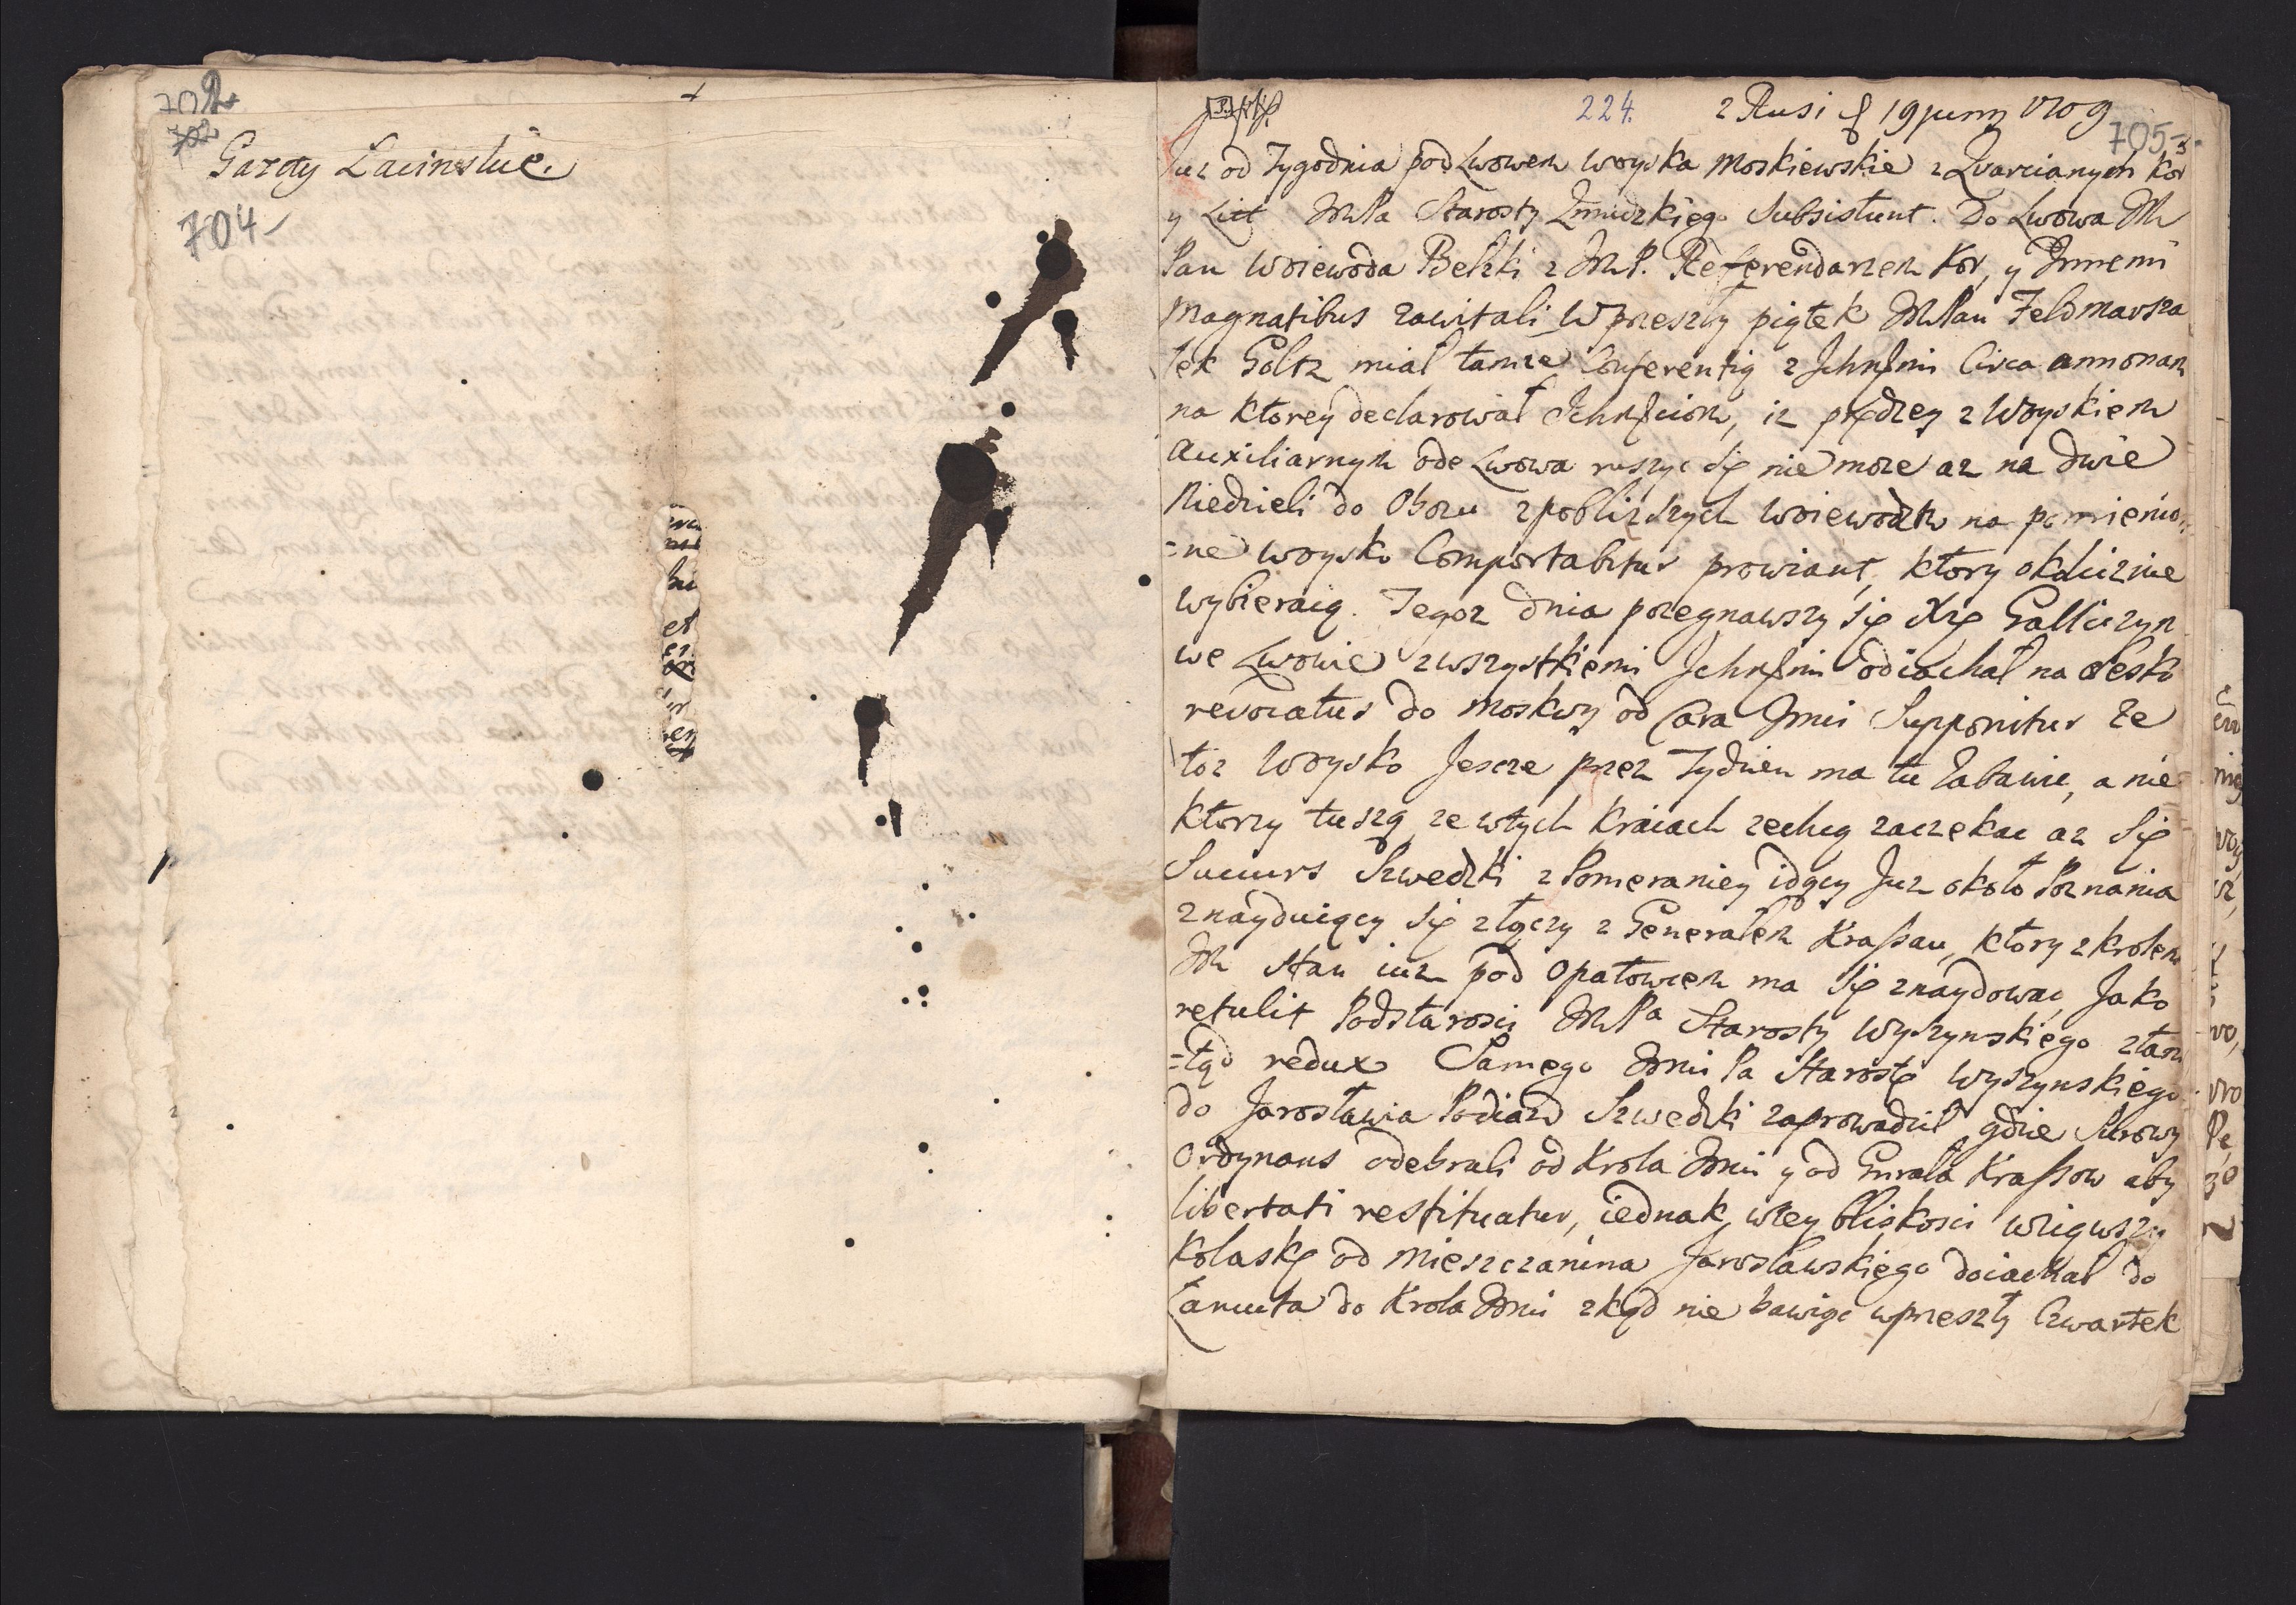 702
Gazety Lacinskie.
704
224. z Rusi d 19 Junij 1709
705
Juz od Tygodnia pod Lwowem woyska Moskiewskie z Qvarcianym Kor
y Litt JMPa Starosty Zmudzkiego Subsistunt. Do Lwowa JM
Pan Woiewoda Belzki z JMP. Referendarzem Kor, y Innemi
Magnatibus zawitali, W przeszły piątek JMPan Feldmarsza
łek Goltz miał tamze Conferentią z Ichmciami Circa annonam
na ktorey declarował Ichmciom, iz prędzey z Woyskiem
Auxiliarnym ode Lwowa ruszyc się nie moze az na dwie
Niedzieli do Obozu z pobliszszych woiewodztw na pomienio
=ne woysko Comportabitur prowiant, ktory okolicznie
wybieraią. Tegoz dnia pozegnawszy się Xże Galliczyn
we Lwowie z wszystkiemi Ichmciami odiachał na Olesko
revocatus do Moskwy od Cara Jmci Supponitur że
toz Woysko Jescze przez Tydzien ma tu zabawic, a nie
ktorzy tuszą ze w tych kraiach zechcą zaczekac az się
Succurs Szwedzki z Pomeraniey idący Juz około Poznania
znayduiący się złączy z Generałem Krassau, ktory z krolem
JM Stan iuz pod Opatowem ma się znaydowac, Jako
retulit Podstarosci JMPa Starosty Wyszynskiego ztam
=tąd redux Samego Jmci Pa Starostę Wyszynskiego
do Jarosławia Podiazd Szwedzki zaprowadził gdzie Surowy
Ordynans odebrali od Krola Jmci y od Gnrała Krassow aby
libertati restituatur, iednak w tey bliskosci wziąwszy
Kolaskę od Mieszczanina Jarosławskiego dociachał do
Łancuta do Krola Jmci zkąd nie bawiąc w przeszły Czwartek